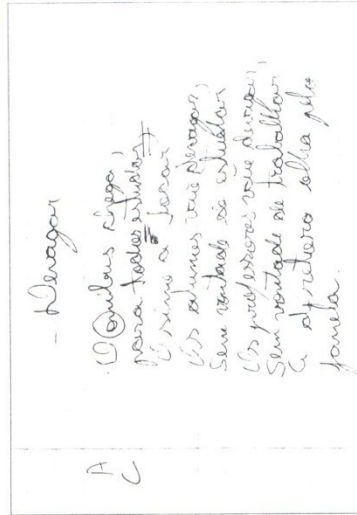 - Devagar
O onibus chega,
para todos estudar
O sino a tocar
Os alunos vão devagar,
Sem vontade de estudar
Os professores vão devagar,
Sem vontade de trabalhar
A diretora olha pela
janela.
A
C